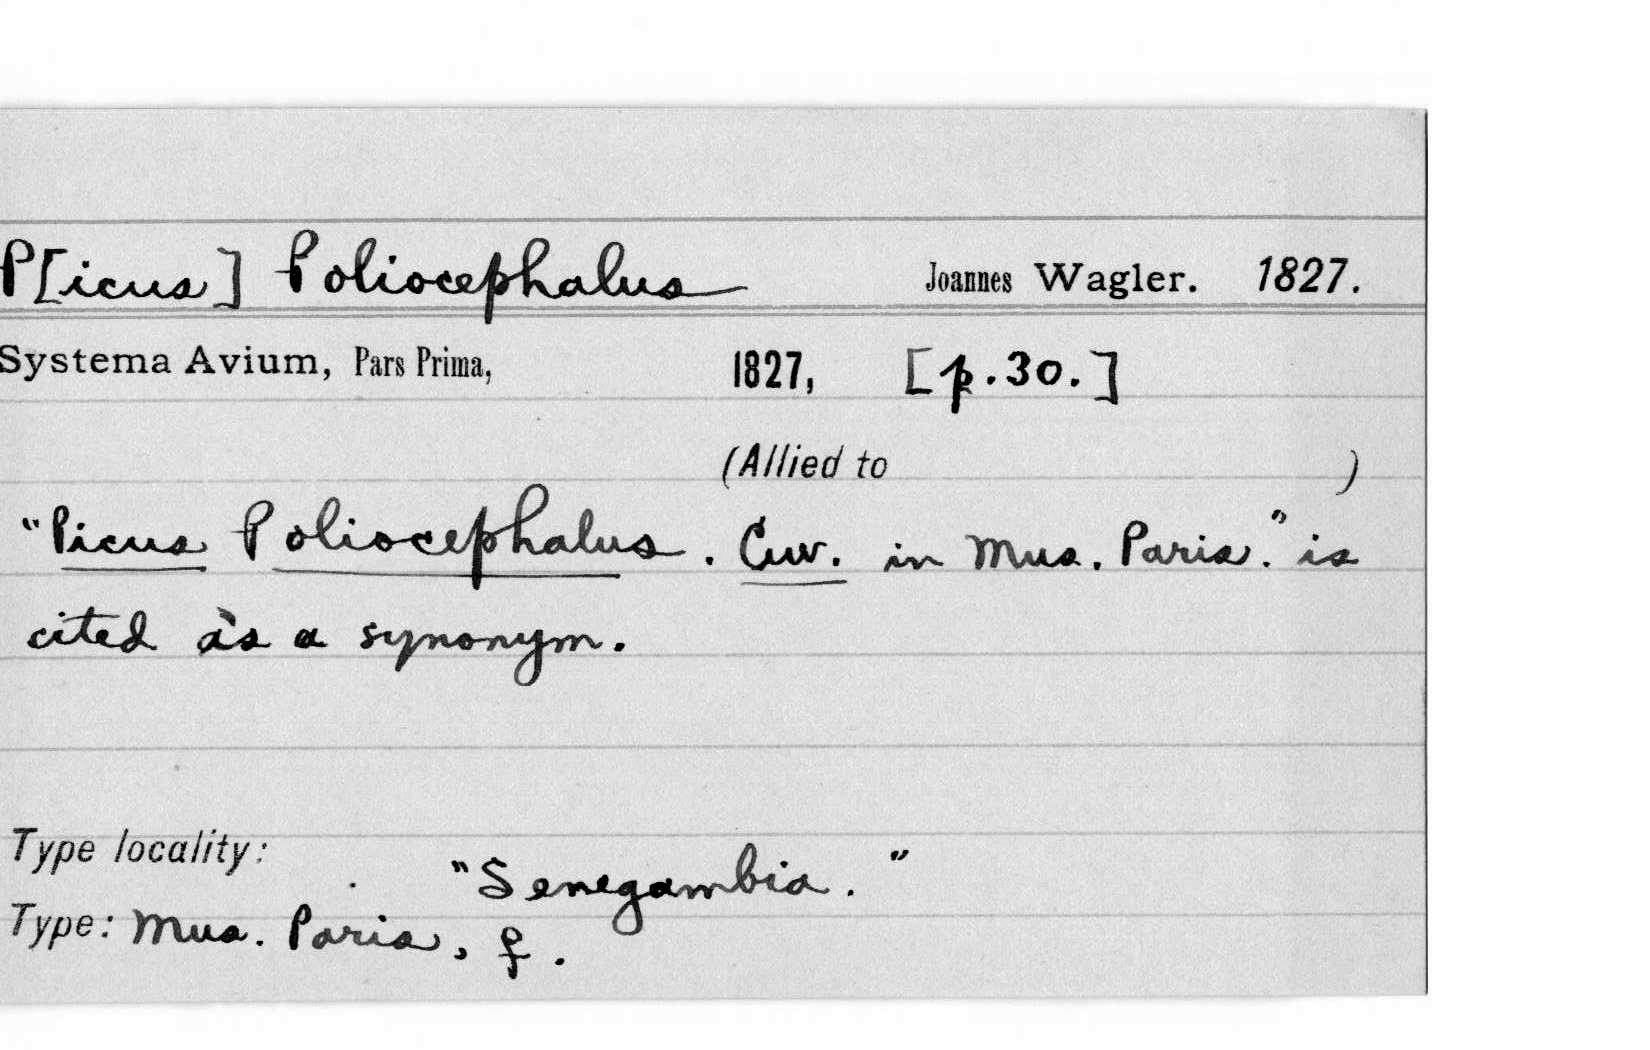 P[icus] Poliocephalus Joannes Wagler. 1827.
Systema Avium, Pars Prima, 1827, [p.30.]
(Allied to )
"Picus Poliocephalus. Cuv. in Mus. Paris." is
cited as a synonym.
Type locality:
"Senegambia."
Type: Mus. Paris, ♀.